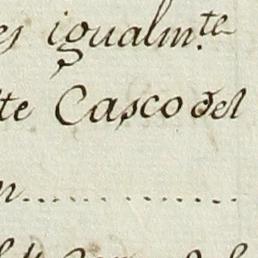 es igualm.te
te Casco del
n..............